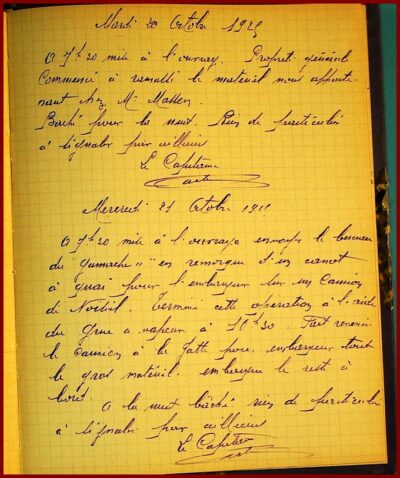 Mardi 20 Octobre 1925
A 7h30 mis à l'ouvrage. Propreté générale
Commencé à ramassé le matériel nous apparte
nant chez Mr
Baché pour la nuit. Rien de particulier
à signaler par ailleurs
Le Capitaine
Mercredi 21 Octobre 1925
A 7h30 mis à l'ouvrage le berceau
du "gamache" en remorque d'un canot
à quai pour l'embarquer sur un Camion
de Terminé cette opération à l'aide
du grue a vapeur à 10h30. Fait revenir
le camion à la pour embarquer tout
le gros matériel. embarqué le reste à
bord.
A la nuit bâché rien de particulier
à signaler par ailleurs
Le Capitaine